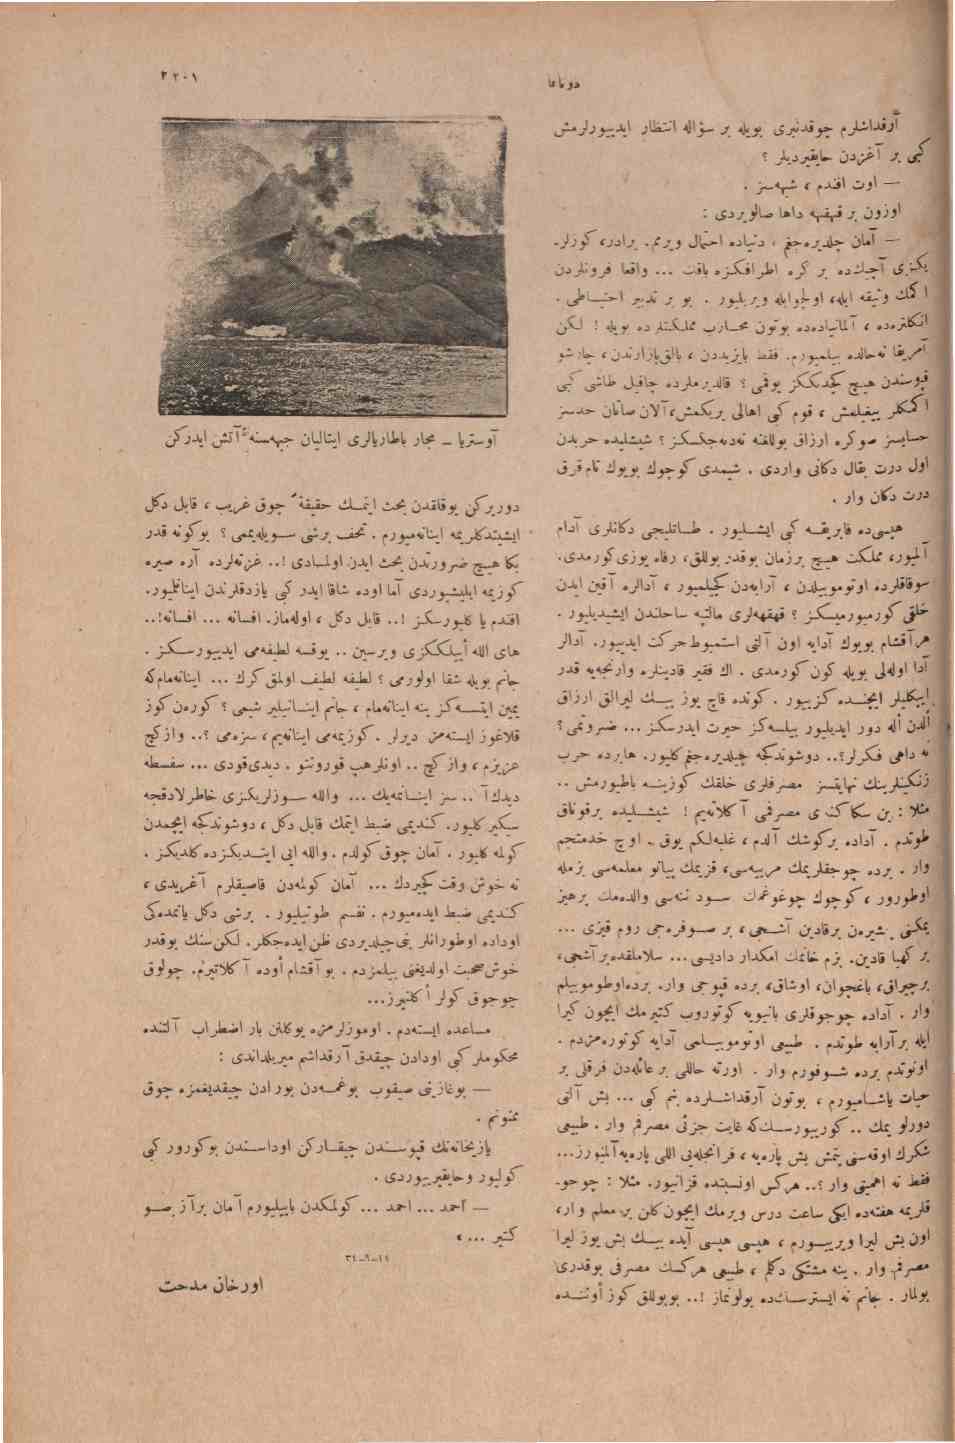 دونانما
٢٢٠١
آرقداشلرم چوقدنبری بویله بر سؤاله انتظار ایدییورلرمش
کبی بر آغزدن حایقیردیلر ؟
— اوت افندم ، شبهه‌سز .
اوزون بر قهقهه داها صالویردی :
— آمان چلدیره‌جغم ، دنیاده احتمال ویرمم. برادر، کوزلر-
یکزی آچك‌ده بر کره اطرافکزه باقك ... واقعا فرونلردن
اکمك وثیقه ایله، اولچوایله ویریلیور . بو بر تدبیر احتیاطی .
انکلتره‌ده ، آلمانیاده‌ده بوتون محارب مملکتلرده بویله ! لکن
آمریقا نه‌حالده بیلمیورم. فقط بایزیددن ، بالق‌پازارندن ، چارشو
قپوسندن هیچ کچدیکز یوقمی ؟ قالدیرملرده چاقیل طاشی کبی
اکمکلر ییغیلمش ، قوم کبی اهالی بریکمش، آلان صاتان حدسز
حسابسز صوکره ارزاق بوللغنه نه‌دیه‌جکسکز ؟ شیشلیده حربدن
اول درت بقال دکانی واردی . شیمدی کوچوك بویوك تام قرق
درت دکان وار .
هپسی‌ده فابریقه کبی ایشلیور . طاتلیجی دکانلری آدام
آلمیور، مملکت هیچ برزمان بوقدر بوللق، رفاه یوزی کورمدی.
سوقاقلرده اوتوموبیلدن ، آرابه‌دن کچیلمیور ، آدالره آقین ایدن
خلقی کورمیورمیسکز ؟ قهقهه‌لری مالتپه ساحلندن ایشیدیلیور .
هرآقشام بویوك آدایه اون آلتی استمبوط حرکت ایدییور. آدالر
آدا اوله‌لی بویله کون کورمدی . اك فقیر قادینلره وارنجه‌یه قدر
ایپکلیلر ایچنده کزییور . کونده قاچ یوز بیك لیرالق ارزاق
الدن اله دور ایدیلیور بیلسه‌کز حیرت ایدرسکز ... ضروتمی ؟
نه داهی فکرلر؟.. دوشوندکجه چیلدیره‌جغم کلیور. هایرده حرب
زنکینلرینك نهایتسز مصرفلری خلقك کوزینه باطیورمش ..
مثلا : بن سکا کندی مصرفمی آکلاته‌یم ! شیشلیده برقوناق
طوتدم . آداده برکوشك آلدم ، غلبه‌لکم یوق . اوچ خدمتجم
وار . برده چوجقلریمك مربیه‌سی، قزیمك پیانو معلمه‌سی بزمله
اوطورور ، کوچوك چوغوغمك سود ننه‌سی والده‌مك پرهیز
یمکنی پیشیرن برقادین آشجی ، بر سوفره‌جی روم قیزی ...
بر کهیا قادین. بزم خانمك امکدار دادیسی... سلاملقده‌بر آشجی،
برچیراق، باغچوان، اوشاق، برده قپوجی وار. برده‌اوطوموبیلم
وار . آداده چوجوقلری بانیویه کوتوروب کتیرمك ایچون کیرا
ایله بر آرابه طوتدم . طبیعی اوتوموبیلمی آدایه کوتوره‌مزدم .
اونوتدم برده شوفورم وار . اورته حاللی بر عائله‌دن فرقلی بر
حیات یاشامیورم ، بوتون آرقداشلرده بنم کبی ... بش آلتی
دورلو یمك .. کورییورسك‌که غایت جزئی مصرفم وار . طبیعی
شکرك اوقه‌سنی یتمش بش پاره‌یه ، فرانجله‌یی اللی پاره‌یه آلمیورز...
فقط نه اهمیتی وار ؟.. هرکس اونسبتده قزانیور. مثلا : چوجو-
قلریمه هفته‌ده ایکی ساعت درس ویرمك ایچون کلن بر معلم وار،
اون بش لیرا ویرییورم ، هپسی هپسی آیده بیك بش یوز لیرا
مصرفم وار . ینه مشتکی دکلم ، طبیعی هرکسك مصرفی بوقدری
بولمار . جانم نه ایسترسه‌ك‌ده بولونماز !.. بوبوللق کوز اوکنده
آوستریا ــ مجار باطاریالری ایتالیان جبهه‌سنه آتش ایدرکن
دوریرکن یوقلقدن بحث ایتمك حقیقةً چوق غریب ، قابل دکل
ایشیتدکلریمه اینانه‌میورم . تحف برشی سویله‌یممی ؟ بوکونه قدر
بکا هیچ ضرورتدن بحث ایدن اولمادی !.. غزته‌لرده آره صیره
کوزیمه ایلیشیوردی آما اوده شاقا ایدر کبی یازدقلرندن اینانمیور.
افندم یا کلیورسکز !.. قابل دکل ، اوله‌ماز. افسانه ... افسانه!..
های الله اییلککزی ویرسین .. یوقسه لطیفه‌می ایدییورسکز .
جانم بویله شقا اولورمی ؟ لطیفه لطیف اولمق کرك ... اینانه‌مام‌که
یمین ایتسه‌کز ینه اینانه‌مام ، جانم اینانیلیر شیمی ؟ کوره‌ن کوز
قلاغوز ایسته‌مز دیرلر . کوزیمه‌می اینانه‌یم ، سزه‌می ؟.. وازکچ
عزیزم ، وازکچ .. اونلرهپ قوروتنو . دیدی‌قودی ... سفسطه
دیدك‌آ .. سز اینانمه‌یك ... والله سوزلریکزی خاطرلادقجه
سیکیر کلیور. کندیمی ضبط ایتمك قابل دکل ، دوشوندکجه ایچمدن
کولمه کلیور . آمان چوق کولدم . والله ایی ایتدیکزده کلدیکز .
نه خوش وقت کچیردك ... آمان کولمه‌دن قاصیقلرم آغریدی ،
کندیمی ضبط ایده‌میورم . نفسم طوتیلیور . برشی دکل یانمده‌کی
اوداده اوطورانلر بنی‌چیلدیردی ظن ایده‌جکلر. لکن‌سنك بوقدر
خوش صحبت اولدیغنی بیلمزدم . بو آقشام اوده آکلاتیرم. چولوق
چوجوق کولر اکلنیرز...
مساعده ایسته‌دم . اوموزلرمزه یوکلنن بار اضطراب آلتنده
محکوملر کبی اودادن چیقدق آرقداشم میریلداندی :
— بوغازینی صیقوب بوغمه‌دن بورادن چیقدیغمزه چوق
ممنونم .
یازیخانه‌نك قپوسندن چیقارکن اوداسندن بوکورور کبی
کولیور وحایقیرییوردی .
— احمد ... احمد ... کولمکدن باییلیورم آمان برآز صو
کتیر ... ،
١٤-٩-٣٤
اورخان مدحت